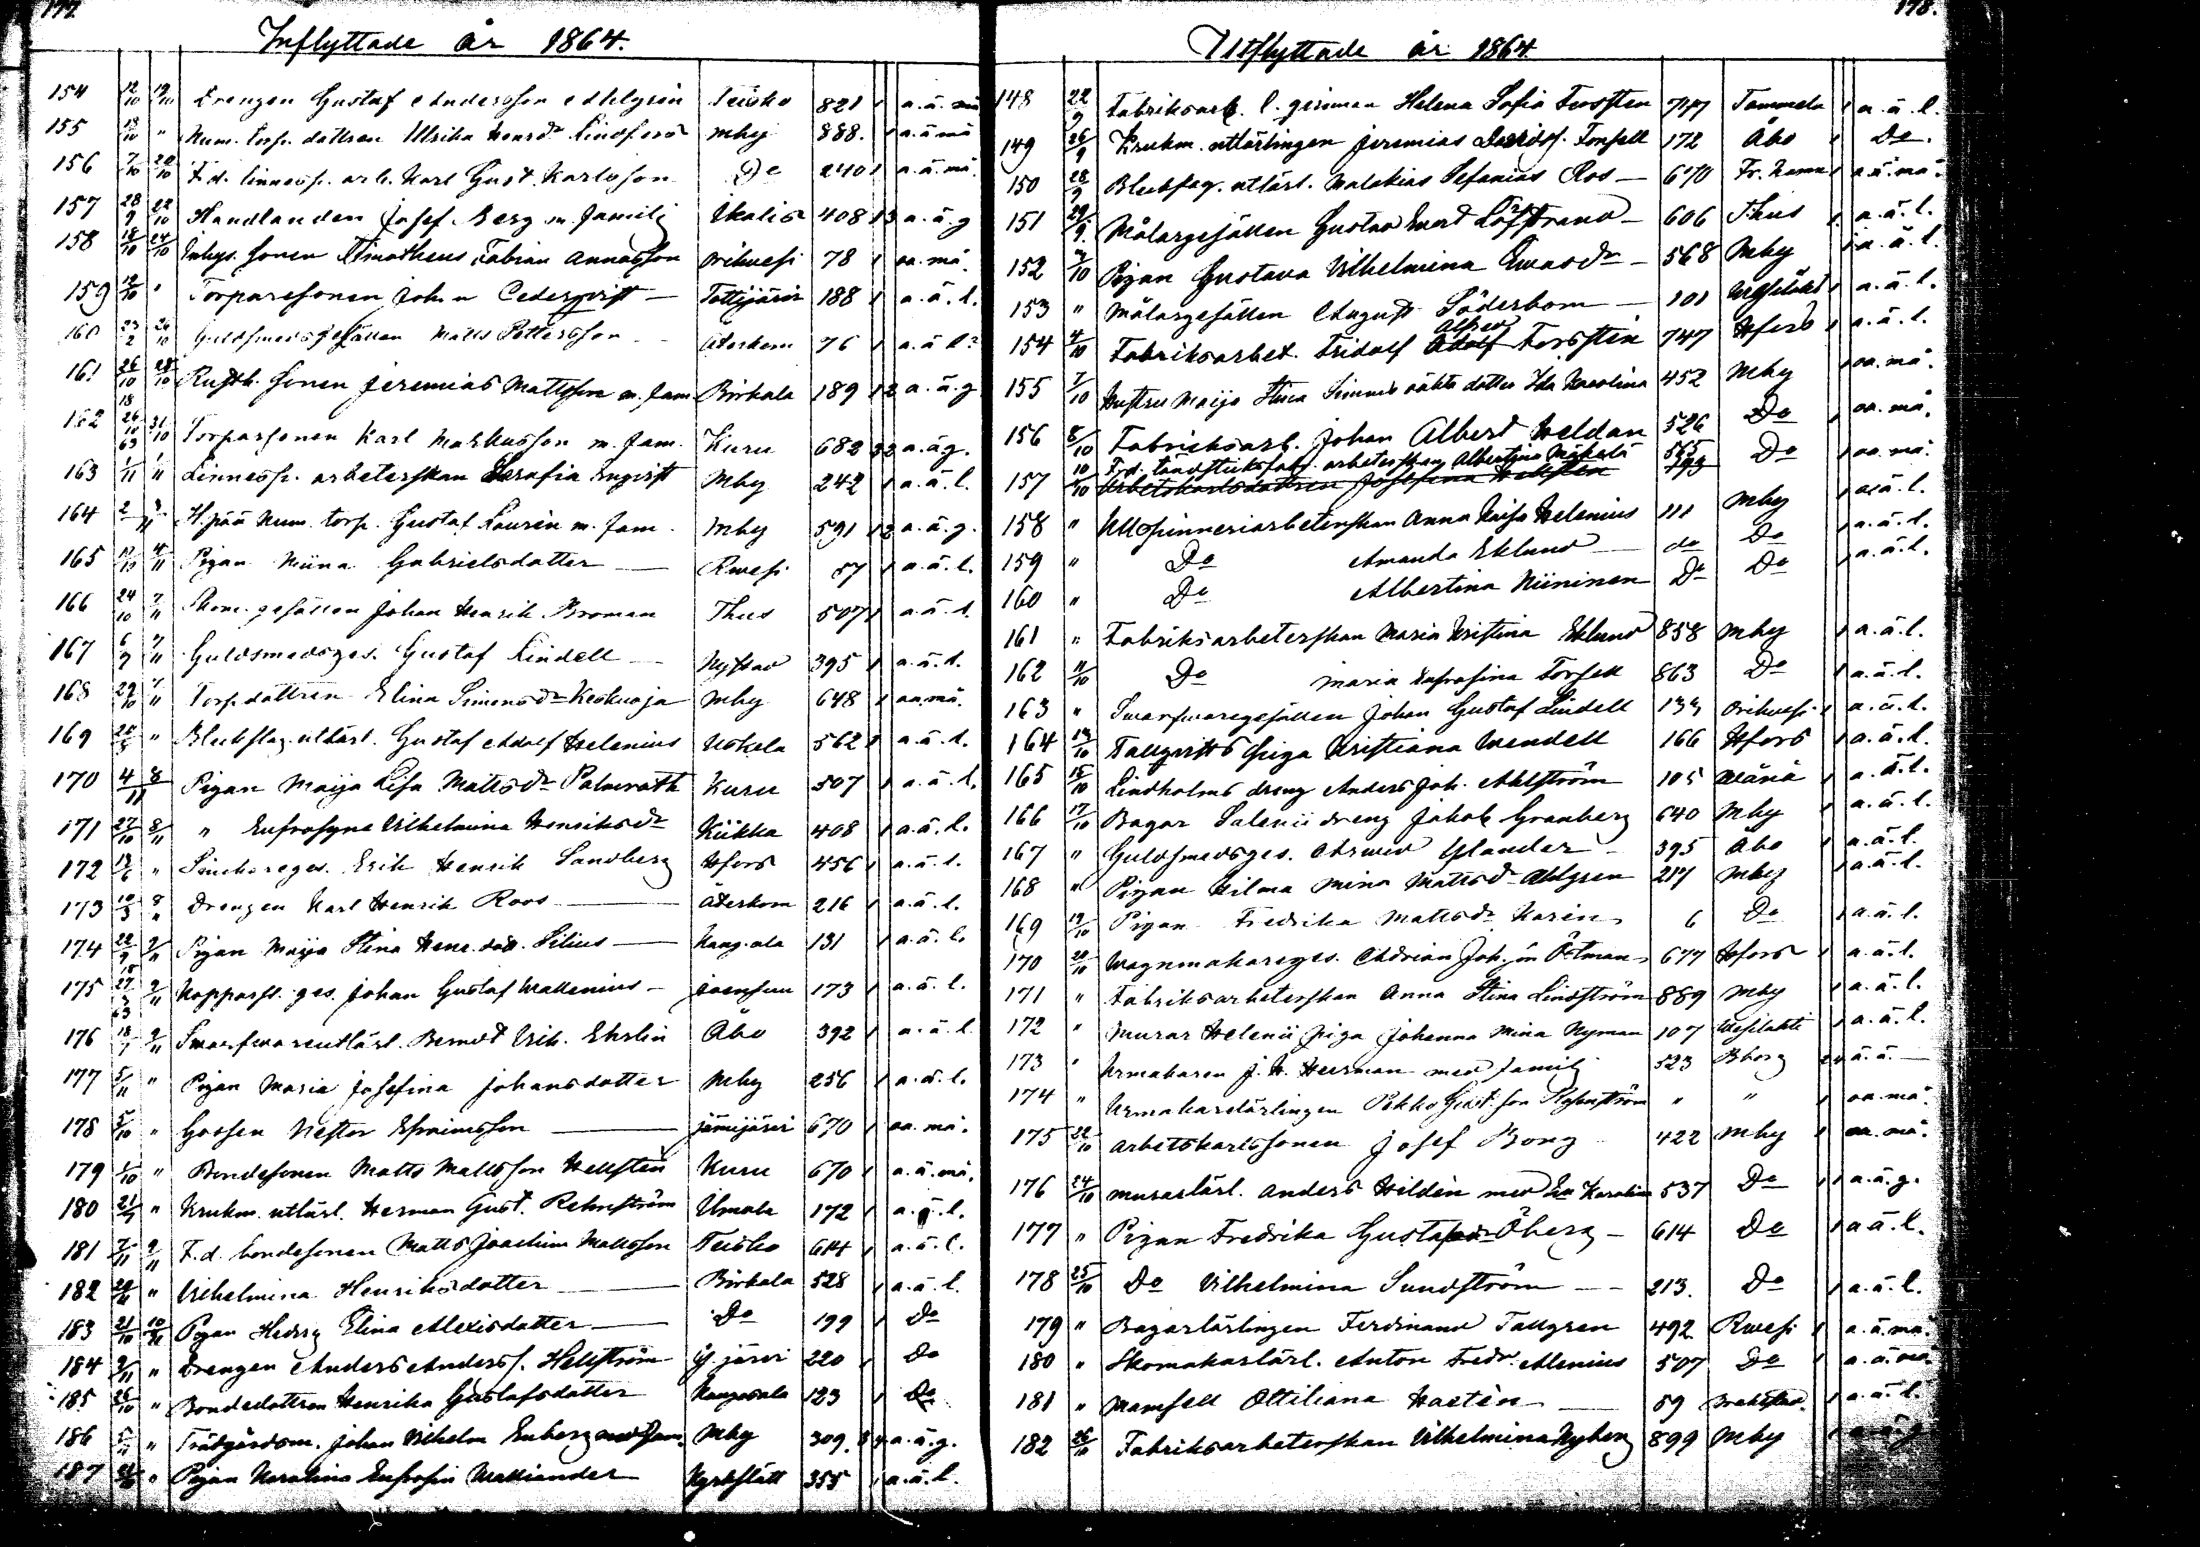 177
Inflyttade år 1864.
154 12/10 19/10 Drengen Gustaf Andersson Ahlgrén Teisko 821 1 a.ä.mä
155 13/10 " Num. torp. dottren Ulrika Henrsdr Lindfors mhy 888. 1 a.ä.mä
156 7/10 20/10 F.d. linnessp. arb. Karl Gust. Karlsson Do 240 1 a.ä.mä.
157 28/9 22/10 Handlanden Josef Berg m. familj Ikalis 408 1 3 a.ä.g
158 18/10 24/10 Inhys. sonen Timotheus Fabian Annasson Orihvesi 78 1 oa.mä.
159 12/10 " Torparesonen Johan Cederqvist — Tottijärvi 188 1 a.ä.l.
160 23/2 26/10 Guldsmedsgesällen Matts Pettersson Återkom 76 1 a.ä.l?
161 26/10 28/10 Rusth. sonen Jeremias Mattsson m. fam. Birkala 189 1 2 a.ä.g
162 18 26/10 63 31/10 Torparsonen Karl Markusson m. fam. Kuru 682 3 2 a.ä.g.
163 1/11 1/11 Linnessp. arbeterskan Serafia Engvist Mhy 242 1 a.ä.l.
164 2/11 H.pää Num. torp. Gustaf Laurén m. fam. Mhy 591 1 2 a.ä.g.
165 4/11 Pigan Miina Gabrielsdotter — Rwesi 87 1 a.ä.l.
166 24/10 7/11 Skom. gesällen Johan Henrik Broman Thus 507 1 a.ä.l.
167 6/9 7/11 Guldsmedsges. Gustaf Lindell — Nystad 395 1 a.ä.l.
168 29/10 7/11 Torp. dottren Elina Simonsdr Keskuoja Mhy 648 1 oa.mä.
169 " Bleckslag. utlärl. Gustaf Adolf Helenius Uskela 562 1 a.ä.l.
170 4/11 8/11 Pigan Maija Lisa Mattsdr Palmroth Kuru 507 1 a.ä.l.
171 27/10 8/11 " Eufrosyne Vilhelmina Henriksdr Kiikka 408 1 a.ä.l.
172 " Snickareges. Erik Henrik Sandberg Hfors 456 1 a.ä.l.
173 10/3 8/11 Drengen Karl Henrik Roos — Återkom 216 1 a.ä.l.
174 22/9 9/11 Pigan Maija Stina Henr. dotr. Silius — Kangasala 131 1 a.ä.l.
175 18 27/3 63 9/11 Kopparsl. ges. Johan Gustaf Wallenius — Joensuu 173 1 a.ä.l.
176 18/7 9/11 Swarfwareutlärl. Berndt Vilh. Ekelin Åbo 392 1 a.ä.l
177 5/11 " Pigan Maria Josefina Johansdotter Mhy 256 1 a.ä.l.
178 5/10 " Gossen Nestor Efraimsson — Jämijärvi 670 1 oa.mä.
179 1/10 " Bondesonen Matts Mattsson Hellsten Kuru 670 1 a.ä.mä.
180 21/7 " Krukm. utlärl. Herman Gust. Rehnström Urmala 172 1 a.ä.l.
181 7/11 9/11 F.d. bondesonen Matts Joachim Mattsson Teisko 614 1 a.ä.l.
182 " Vilhelmina Henriksdotter — Birkala 528 1 a.ä.l.
183 21/10 10/11 Pigan Hedvig Elina Alexisdotter — Do 199 1 Do
184 9/11 " Drengen Anders Anderss. Hellström Y. järvi 220 1 Do
185 26/10 " Bondedottren Henrika Gustafsdotter Kangasala 123 1 Do
186 5/11 " Trädgårdsm. Johan Vilhelm Enberg med fam. Mhy 309. 3 4 a.ä.g.
187 " Pigan Karolina Eufrosin Walliander Kyrkslätt 355 1 a.ä.l.
178.
Utflyttade år 1864.
148 22/9 Fabriksarb. l. ginman Helena Sofia Forsstén 747 Tammela 1 a.ä.l.
149 26/9 Krukm. utlärlingen Jeremias Davidss. Tonsell 172 Åbo 1 Do.
150 28/9 Bleckslag. utlärl. Malakias Sefanias Ros — 670 Fr. hamn 1 a.ä.mä.
151 29/9 Målargesällen Gustav Evert Löfstrand — 606 Thus 1 a.ä.l.
152 3/10 Pigan Gustava Vilhelmina Ewasdr — 568 Mhy 1 a.ä.l.
153 " Målargesällen August Söderbom — 101 Wesilaks 1 a.ä.l.
154 4/10 Fabriksarbet. Fridolf Alfred Forsstén 747 Hfors 1 a.ä.l.
155 7/10 Hustru Maija Stina Simons oäkta dotter Ida Karolina 452 Mhy 1 oa.mä.
156 8/10 Fabriksarb. Johan Albert Heldan 526 Do 1 oa.mä.
157 10/10 F.d. tändsticksfabr. arbeterskan Albertina Mäkelä 565 Do 1 oa.mä.
Arbetskarlsdottren Josefina Hellsten 793
158 " Ullspinneriarbeterskan Anna Kaisa Helenius 111 Mhy 1 a.ä.l.
159 " Do Amanda Eklund — do Do 1 a.ä.l.
160 " Do Albertina Niininen Do Do 1 a.ä.l.
161 " Fabriksarbeterskan Maria Kristina Eklund 858 Mhy 1 a.ä.l.
162 11/10 Do Maria Eufrosina Forsell 863 Do 1 a.ä.l.
163 " Swarfwaregesällen Johan Gustaf Lindell 133 Orihvesi 1 a.ä.l.
164 13/10 Tallqvists piga Kristiana Wendell 166 Hfors 1 a.ä.l.
165 15/10 Lindholms dreng Anders Joh. Ahlström 105 Wånå 1 a.ä.l.
166 17/10 Bagar Salenii dreng Jakob Granberg 640 Mhy 1 a.ä.l.
167 " Guldsmedsges. Arwid Ylander — 395 Åbo 1 a.ä.l.
168 " Pigan Hilma Mina Mattsdr Ahlgren 217 Mhy 1 a.ä.l.
169 19/10 Pigan Fredrika Mattsdr Karin 6 Do 1 a.ä.l.
170 20/10 Wagnmakareges. Adrian Joh.son Östman 677 Hfors 1 a.ä.l.
171 " Fabriksarbeterskan Anna Stina Lindström 889 Mhy 1 a.ä.l.
172 " Murar Helenii piga Johanna Mina Nyman 107 Wesilahti 1 a.ä.l.
173 " Urmakaren J. W. Heerman med familj 523 Bborg 2 4 a.ä.—
174 " Urmakarelärlingen Pekka Gust.son " " 1 oa.mä.
175 22/10 Arbetskarlssonen Josef Bong 422 Mhy 1 oa.mä.
176 24/10 Murarlärl. Anders Hildén med Eva Karolina 537 Do 1 1 a.ä.g.
177 " Pigan Fredrika Gustafsdr Öberg — 614 Do 1 a.ä.l.
178 25/10 Do Vilhelmina Sundström — 213. Do 1 a.ä.l.
179 " Bagarlärlingen Ferdinand Tallgren 492 Rwesi 1 a.ä.mä.
180 " Skomakarlärl. Anton Fredr. Alenius 507 Do 1 a.ä.mä.
181 " Mamsell Ottiliana Hasten — 59 Brahestad. 1 a.ä.l.
182 26/10 Fabriksarbeterskan Vilhelmina Nyberg 899 Mhy 1